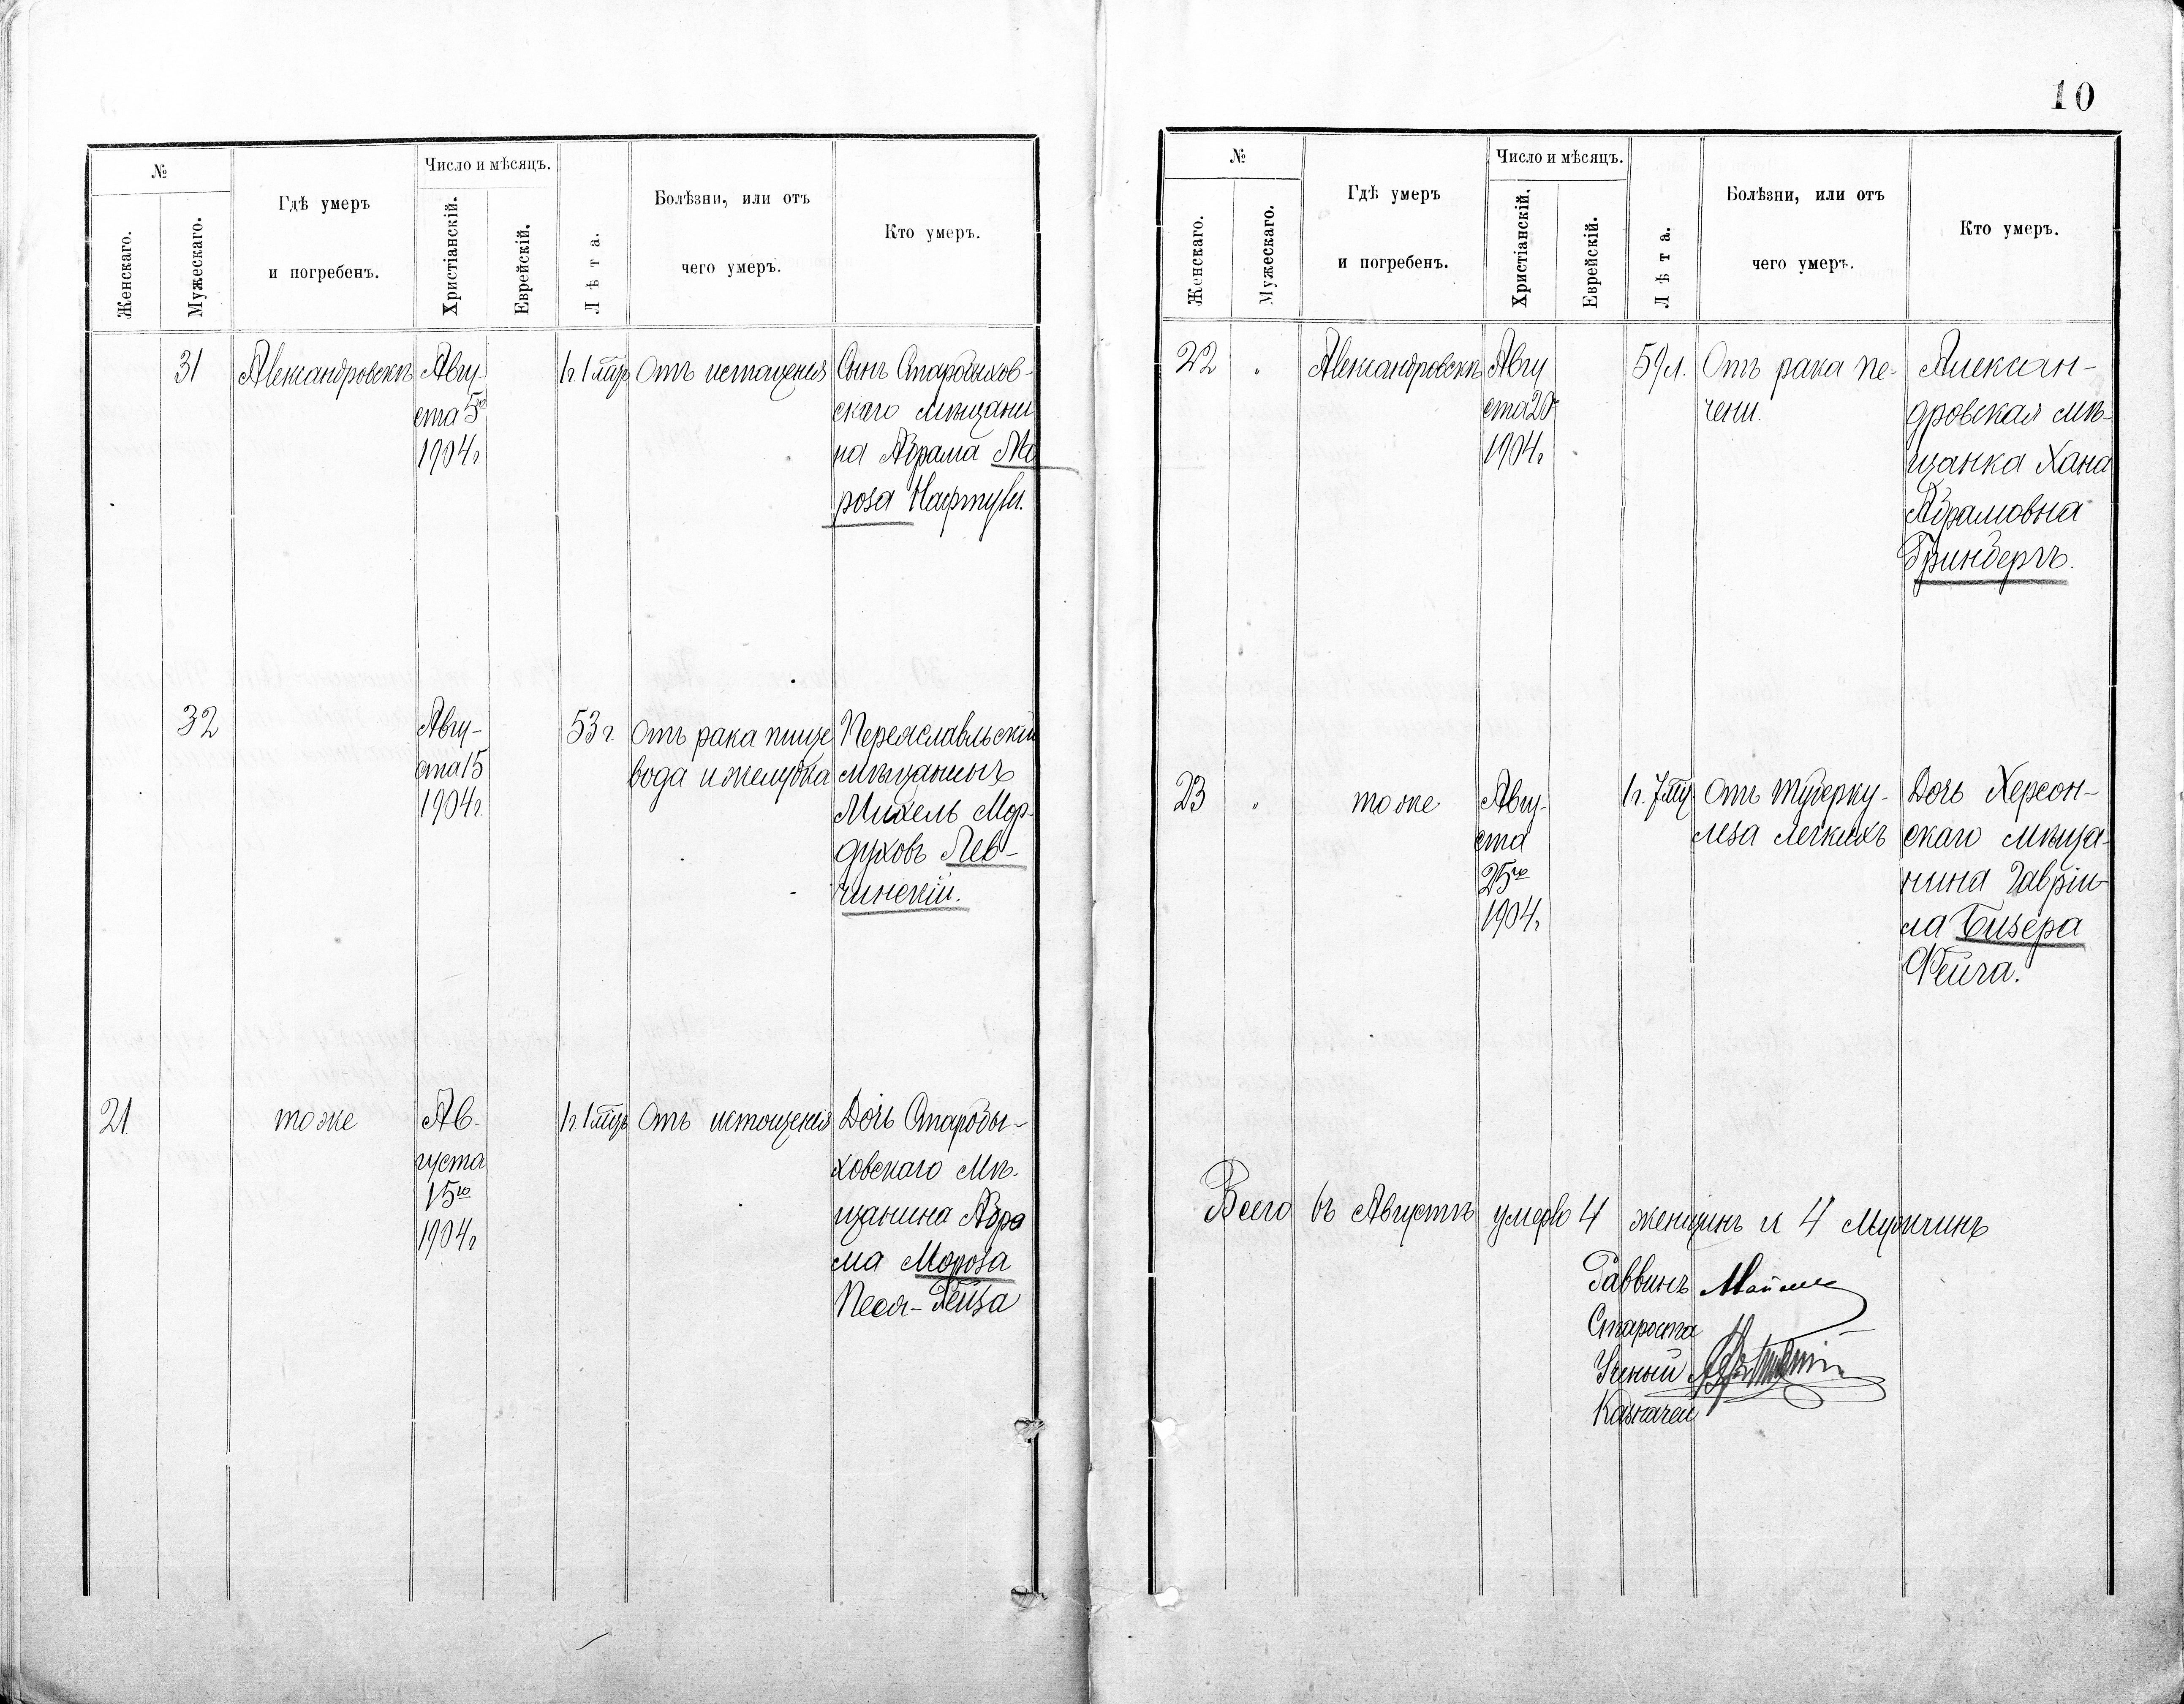 10
№
Женскаго.
Мужескаго.
Гдѣ умеръ
и погребенъ.
Число и мѣсяцъ.
Христіанскій.
Еврейскій.
Лѣта.
Болѣзни, или отъ
чего умеръ.
Кто умеръ.
31 Александровскъ Авгу-
ста 5го
1904 г
1 г. 1 мцъ
Отъ истощенія
Сынъ Старобыхов-
скаго мѣщани
на Абрама Мо
роза Нафтулъ.
32
Авгу-
ста 15
1904 г.
53 г.
Отъ рака пище
вода и желудка
Переяславльскій
мѣщанинъ
Михель Мор-
духовъ Лев-
чинскій.
21 тоже
Ав-
густа
15го
1904 г
1 г. 1 мцъ
Отъ истощенія
Дочь Старобы-
ховскаго Мѣ-
щанина Абра
ма Мороза
Песя-Рейза
№
Женскаго.
Мужескаго.
Гдѣ умеръ
и погребенъ.
Число и мѣсяцъ.
Христіанскій.
Еврейскій.
Лѣта.
Болѣзни, или отъ
чего умеръ.
Кто умеръ.
22 " Александровскъ
Авгу
ста 20
1904 г
59 л.
Отъ рака пе-
чени.
Алексан-
дровская мѣ-
щанка Хана
Абрамовна
Гринбергъ.
23 " тоже
Авгу-
ста
25го
1904 г
1 г. 7 мц
Отъ туберку-
леза легкихъ
Дочь Херсон-
скаго мѣща-
нина Гавріи-
ла Бизера
Фейга.
Всего въ Августѣ умерло 4 женщинъ и 4 Мужчинъ
Раввинъ
Староста
Ученый
Казначей